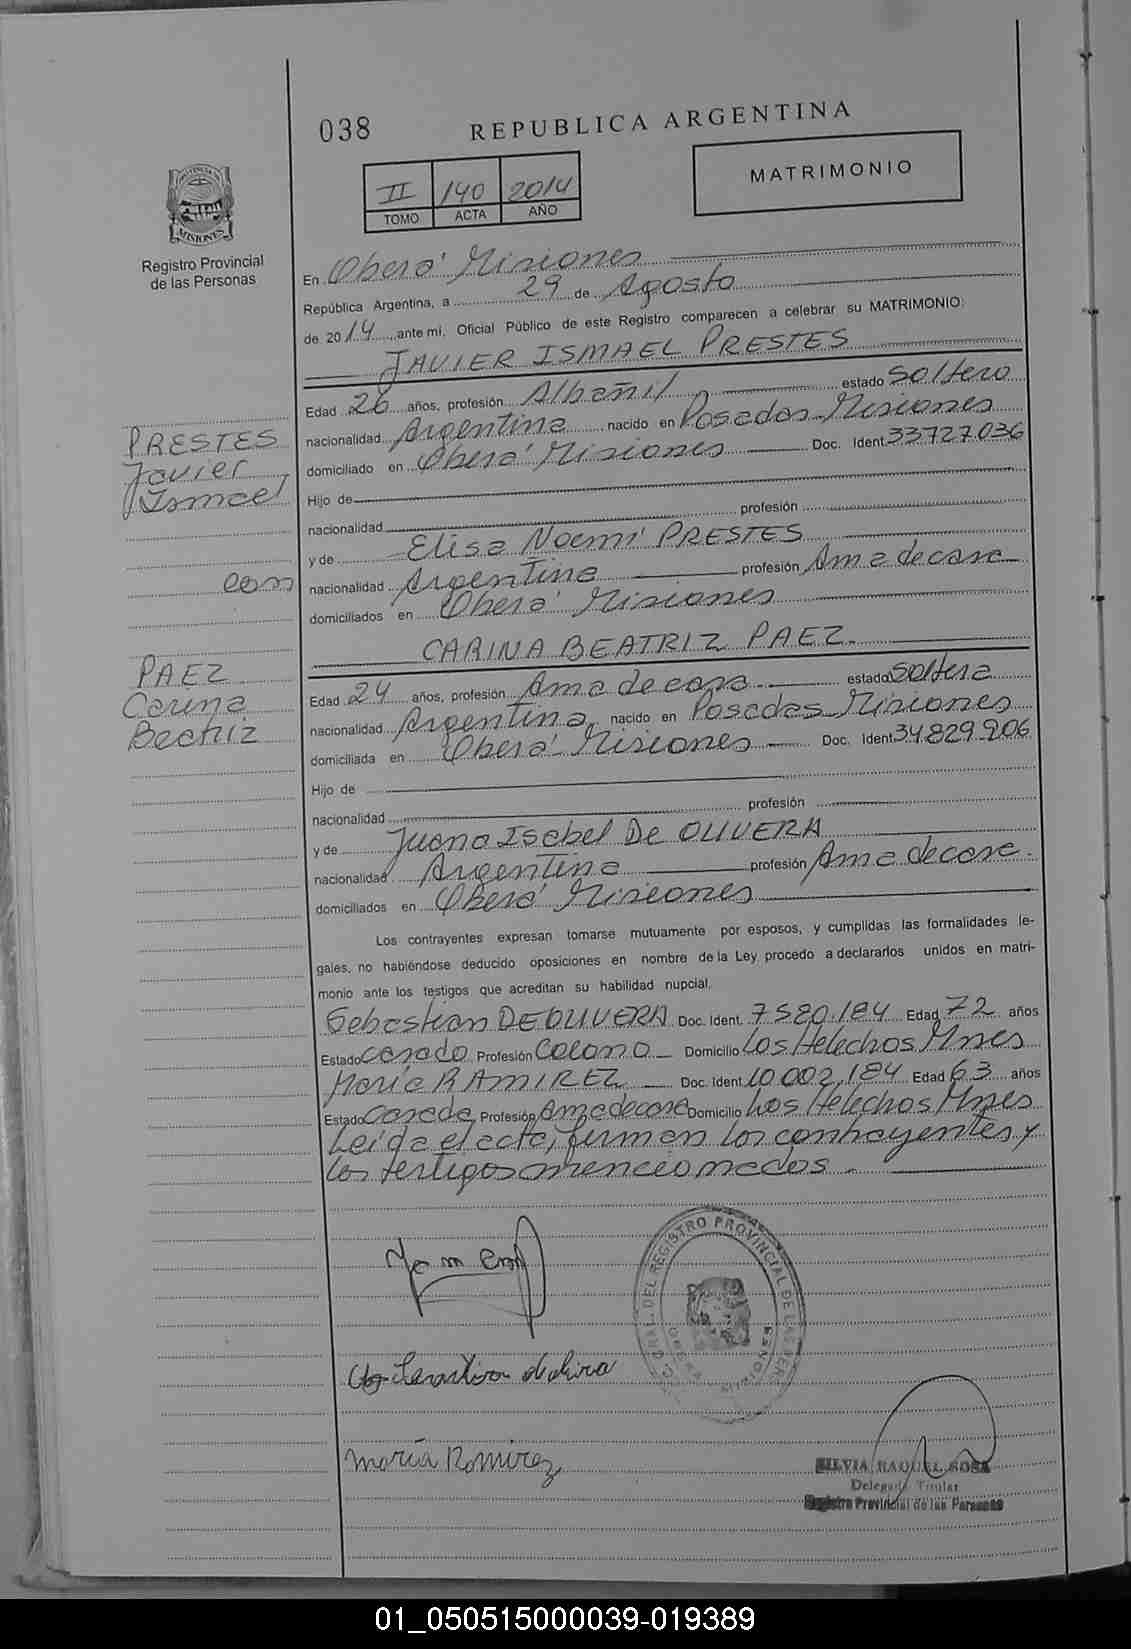 038 REPUBLICA ARGENTINA
II 140 2014
TOMO ACTA AÑO
MATRIMONIO
MISIONES
Registro Provincial
de las Personas
En Oberá Misiones
República Argentina, a 29 de Agosto
de 2014 ante mí, Oficial Público de este Registro comparecen a celebrar su MATRIMONIO:
JAVIER ISMAEL PRESTES
Edad 26 años, profesión Albañil estado Soltero
nacionalidad Argentina nacido en Posadas Misiones
domiciliado en Oberá Misiones Doc. Ident 33727036
Hijo de
nacionalidad profesión
y de Elisa Noemí PRESTES
nacionalidad Argentina profesión Ama de casa
domiciliados en Oberá Misiones
PRESTES
Javier
Ismael
con
PAEZ
Carina
Beatriz
CARINA BEATRIZ PAEZ.
Edad 24 años, profesión Ama de casa estado Soltera
nacionalidad Argentina, nacido en Posadas Misiones
domiciliada en Oberá Misiones Doc. Ident 34829906
Hijo de
nacionalidad profesión
y de Juana Isabel De OLIVERA
nacionalidad Argentina profesión Ama de casa.
domiciliados en Oberá Misiones
Los contrayentes expresan tomarse mutuamente por esposos, y cumplidas las formalidades le-
gales, no habiéndose deducido oposiciones en nombre de la Ley procedo a declararlos unidos en matri-
monio ante los testigos que acreditan su habilidad nupcial.
Sebastian DE OLIVERA Doc. Ident. 7580.184 Edad 72 años
Estado casado Profesión Colono Domicilio Los Helechos Mnes
María RAMIREZ Doc. Ident 10.002.184 Edad 63 años
Estado Casada Profesión Ama de casa Domicilio Los Helechos Mnes
Leída el acta, firman los contrayentes y
los testigos mencionados.
GRAL. DEL REGISTRO PROVINCIAL DE LAS PER
OBERA MISIONES
María Ramirez
SILVIA RAQUEL SOSA
Delegada Titular
Registro Provincial de las Personas
01_050515000039-019389